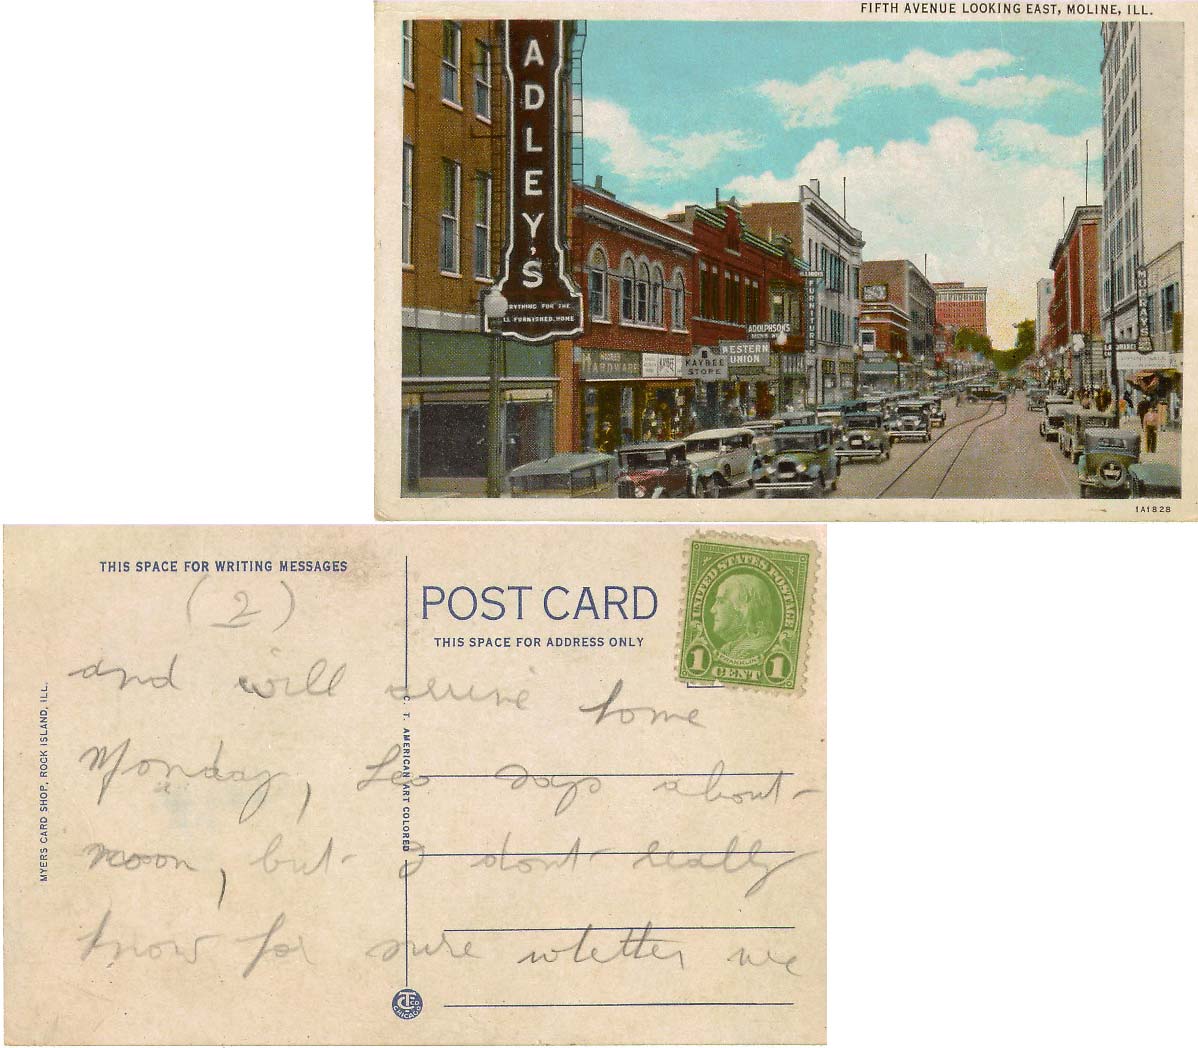 FIFTH AVENUE LOOKING EAST, MOLINE, ILL.
ADLEY'S
RYTHING FOR THE
LL FURNISHED HOME
HARDWARE
KAYBEE
STORE
WESTERN
UNION
ADOLPHSON'S
ILLINOIS
FURNITURE
MURRAY'S
1A1828
THIS SPACE FOR WRITING MESSAGES
POST CARD
THIS SPACE FOR ADDRESS ONLY
UNITED STATES POSTAGE
FRANKLIN
1 CENT 1
MYERS CARD SHOP, ROCK ISLAND, ILL.
C. T. AMERICAN ART COLORED
(2)
and will arrive home
Monday, Leo says about
noon, but I dont really
know for sure whether we
CHICAGO